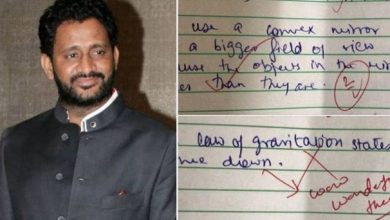 use a convex mirror
a bigger field of view
use the objects in the mi
es than they are.
2
law of gravitation states
me down.
wow